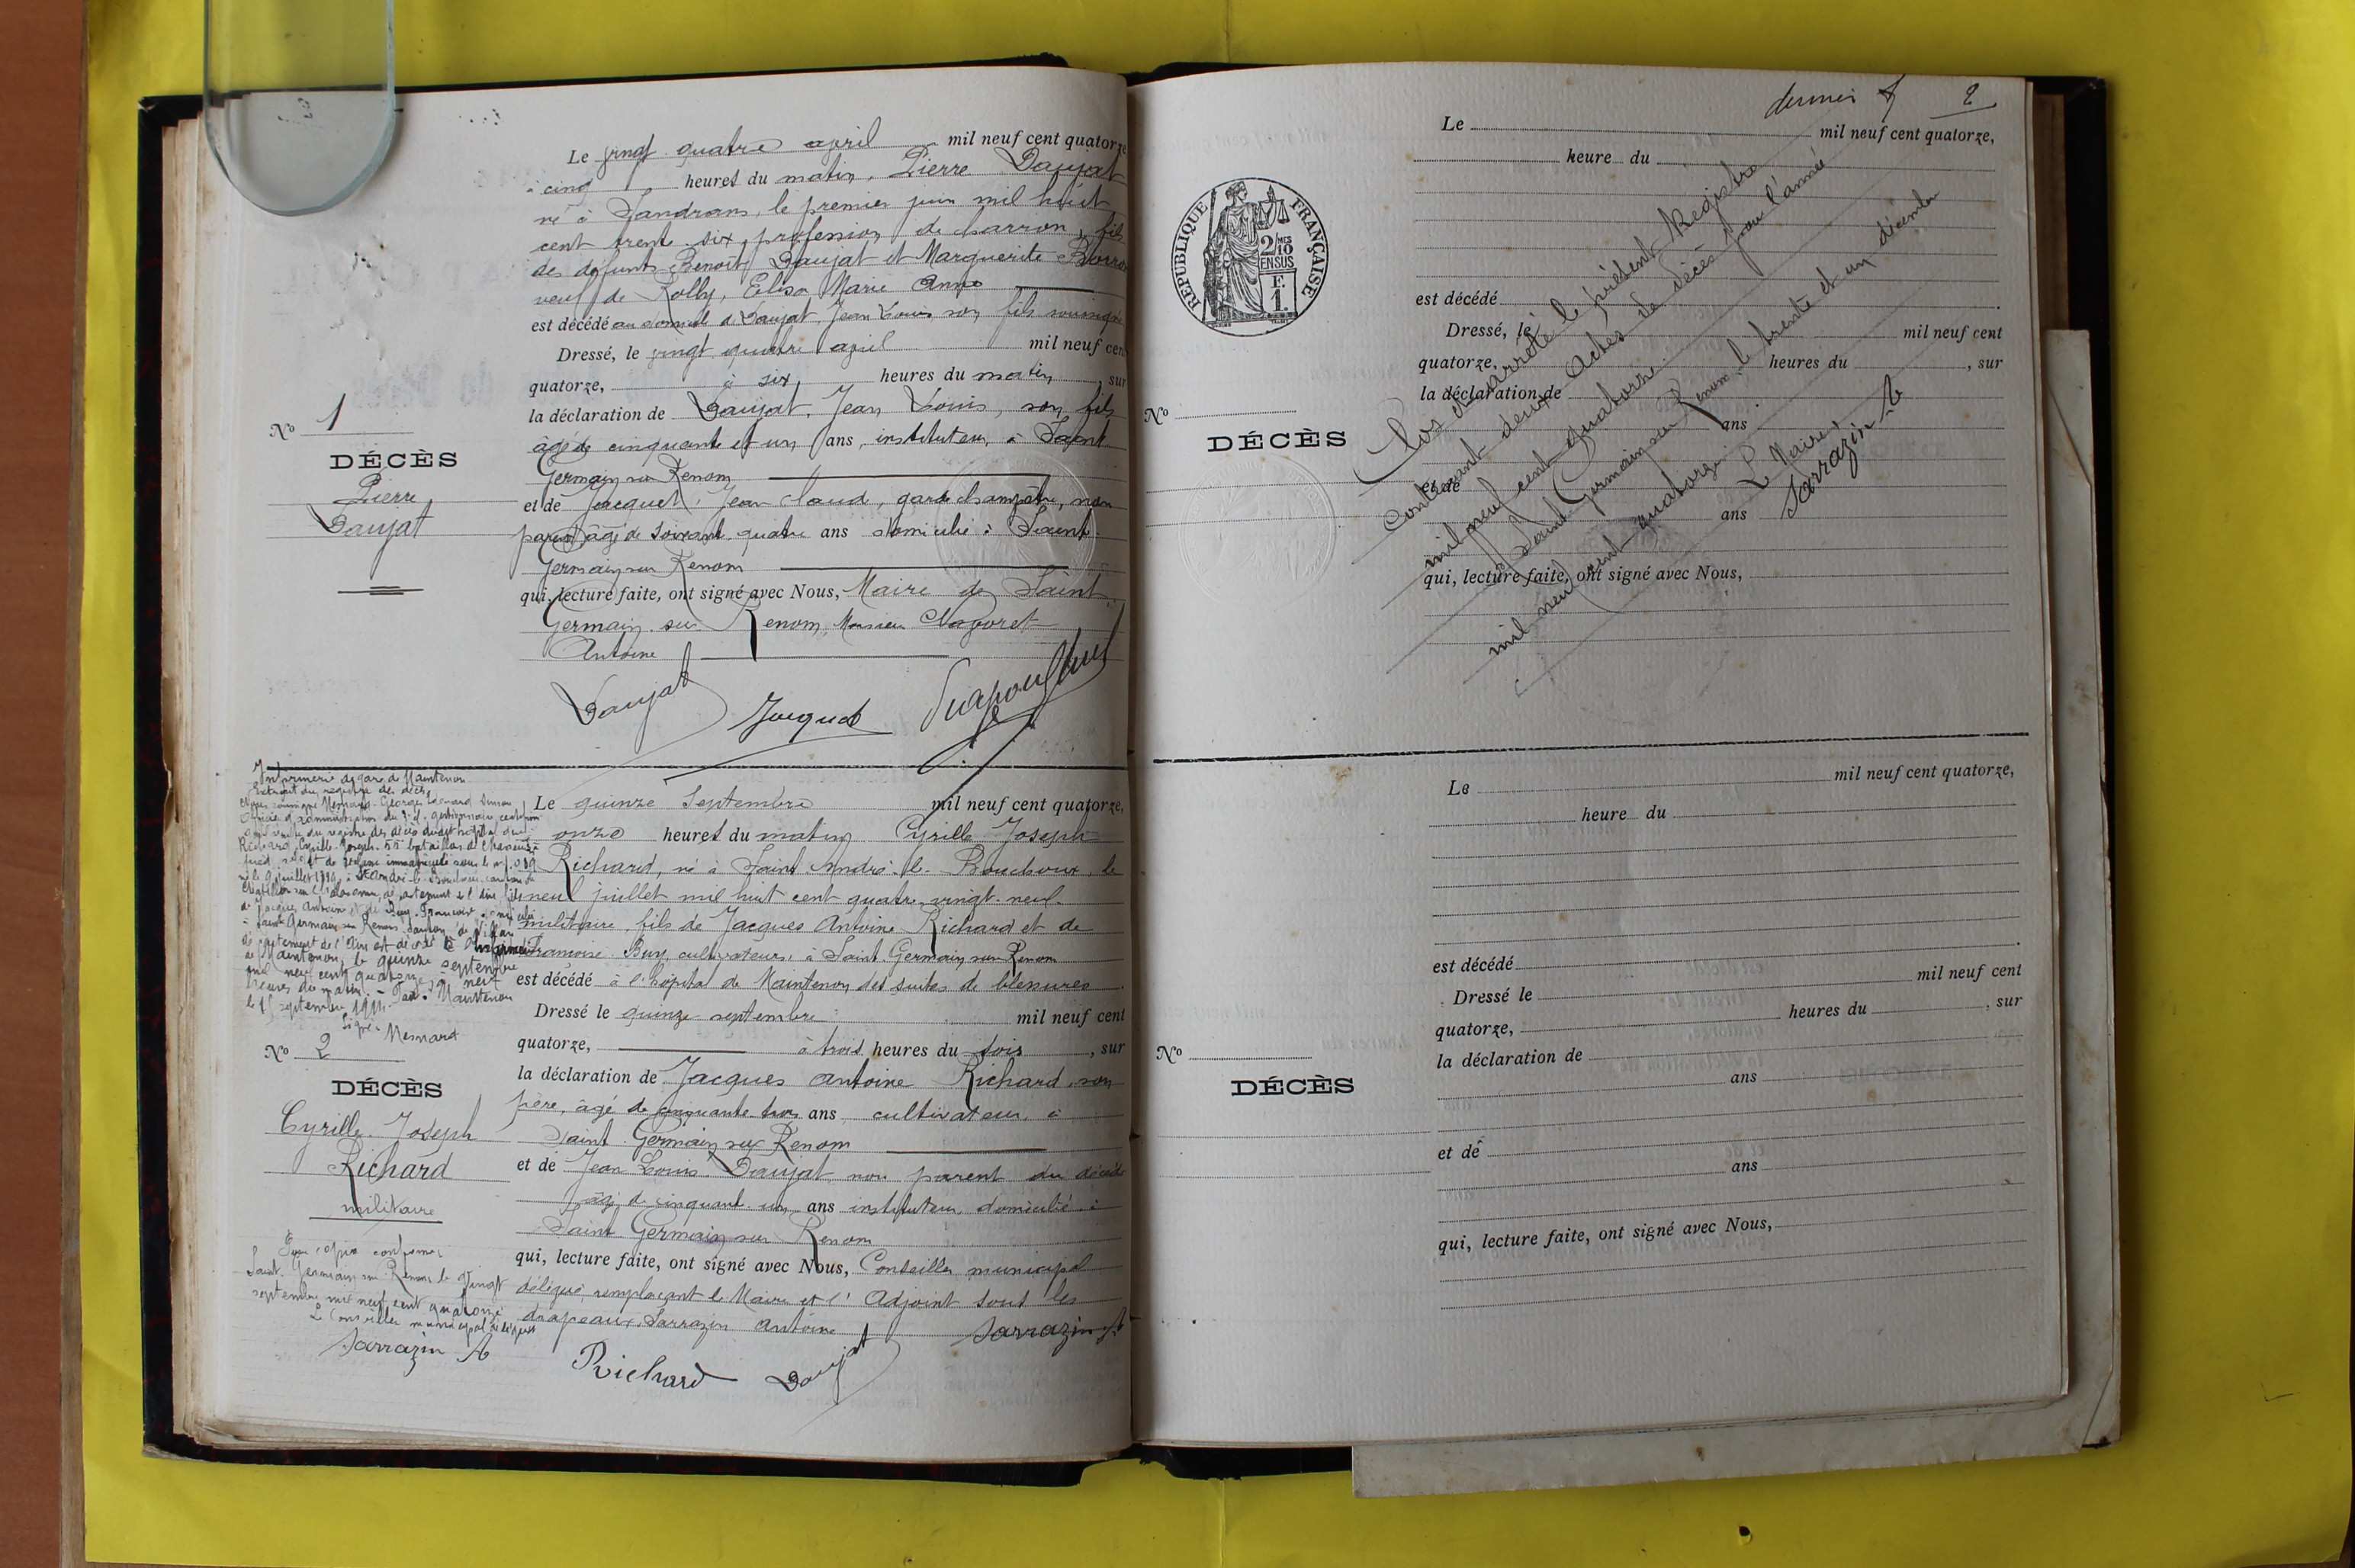 Le vingt quatre avril mil neuf cent quatorze
à cinq heures du matin, Pierre Daujat
né à Sandrans, le premier juin mil huit
cent trente six, profession de charron, fils
des défunts Benoit Daujat et Marguerite
veuf de Rolly, Elisa Marie Anne
est décédé au domicile de Daujat, Jean Louis son fils soussigné
Dressé, le vingt quatre avril mil neuf cent
quatorze, à six heures du matin, sur
la déclaration de Daujat, Jean Louis, son fils
âgé de cinquante et un ans, instituteur, à Saint
Germain sur Renom
et de Jacquet, Jean Claud, garde champêtre, non
parent âgé de soixante quatre ans domicilié à Saint
Germain sur Renom
qui, lecture faite, ont signé avec Nous, Maire de Saint
Germain sur Renom, Monsieur
Antoine
Daujat Jacquet
No 1
DÉCÈS
Pierre
Daujat
Le quinze Septembre mil neuf cent quatorze,
onze heures du matin Cyrille Joseph
Richard, né à Saint André le Bouchoux, le
neuf juillet mil huit cent quatre vingt neuf
militaire, fils de Jacques Antoine Richard et de
Françoise Buy, cultivateurs, à Saint Germain sur Renom
est décédé à l'hôpital de Maintenon des suites de blessures
Dressé le quinze septembre mil neuf cent
quatorze, à trois heures du soir, sur
la déclaration de Jacques Antoine Richard, son
père, âgé de cinquante trois ans cultivateur à
Saint Germain sur Renom
et de Jean Louis Daujat, non parent du décédé
âgé de cinquante un ans instituteur domicilié à
Saint Germain sur Renom
qui, lecture faite, ont signé avec Nous, Conseiller municipal
délégué, remplaçant le Maire et l'Adjoint sous les
drapeaux, Sarrazin Antoine Sarrazin A
Richard Daujat
Infirmerie de gare de Maintenon
Extrait du registre des décès
Richard Cyrille Joseph
de Maintenon, le quinze septembre
mil neuf cent quatorze, à neuf
heures du matin. Maintenon
le 15 septembre 1914
Signé Mesnard
No 2
DÉCÈS
Cyrille Joseph
Richard
militaire
Pour copie conforme
Saint Germain sur Renom le vingt
septembre mil neuf cent quatorze
Le Conseiller municipal délégué
Sarrazin A
dernier f 2
Le mil neuf cent quatorze,
heure du
est décédé
Dressé, le mil neuf cent
quatorze, heures du , sur
la déclaration de
ans
et de
ans
qui, lecture faite, ont signé avec Nous,
Clos et arrêté le présent Registre
contenant deux actes de décès pour l'année
mil neuf cent quatorze.
Saint Germain sur Renom, le trente et un décembre
mil neuf cent quatorze.
Le Maire,
Sarrazin A
RÉPUBLIQUE FRANÇAISE
2/10
EN SUS
F.
1
No
DÉCÈS
Le mil neuf cent quatorze,
heure du
est décédé
Dressé le mil neuf cent
quatorze, heures du , sur
la déclaration de
ans
et de
ans
qui, lecture faite, ont signé avec Nous,
No
DÉCÈS